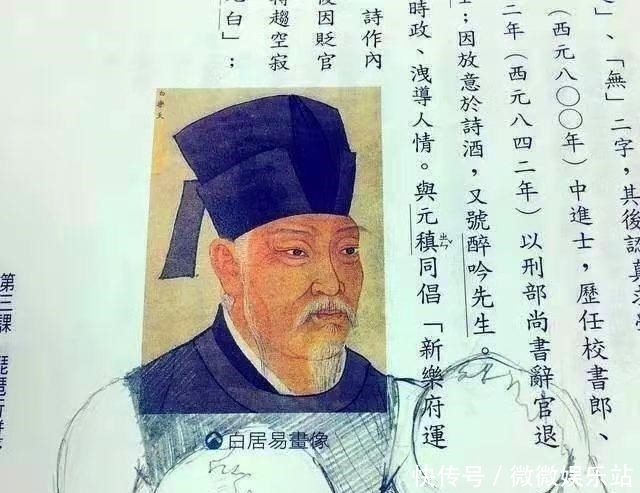 」、「無」二字，其後認真
（西元八〇〇年）中進士，歷任校書郎、
二年（西元八四二年）以刑部尚書辭官退
；因放意於詩酒，又號醉吟先生。
時政、洩導人情。與元稹同倡「新樂府運
詩作內
後因貶官
將趨空寂
元白」；
白樂天
白居易畫像
第三課 琵琶行并序
快传号 / 微微娱乐站